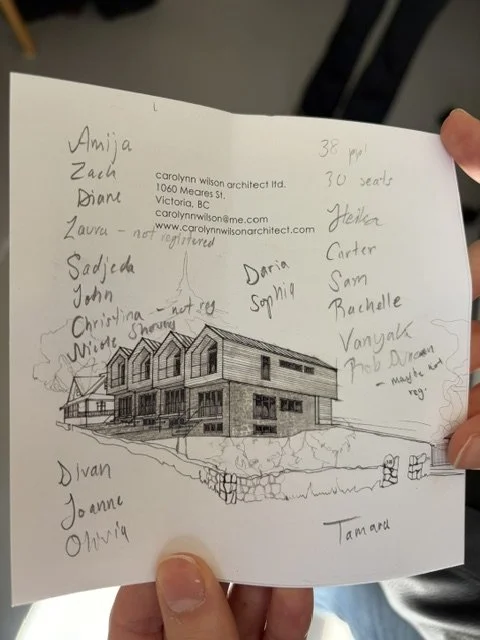 Amija
Zach
Diane
Laura - not registered
Sadjeda
John
Christina - not reg
Nicole
carolynn wilson architect ltd.
1060 Meares St.
Victoria, BC
carolynnwilson@me.com
www.carolynnwilsonarchitect.com
Daria
Sophia
38 ppl
30 seats
Heika
Carter
Sam
Rachelle
Vanyak
Rob Duncan
- maybe not
reg.
Divan
Joanne
Olivia
Tamara